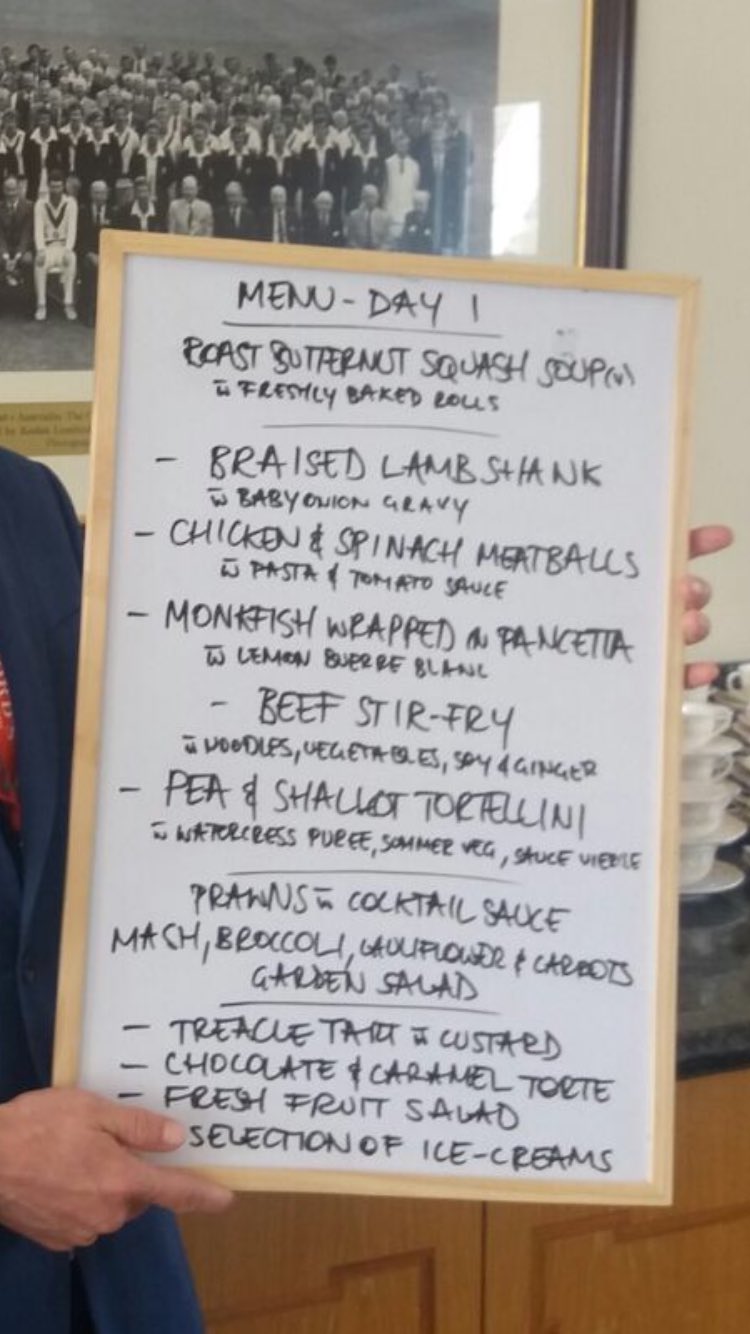 MENU - DAY 1
ROAST BUTTERNUT SQUASH SOUP (v)
w̄ FRESHLY BAKED ROLLS
- BRAISED LAMB SHANK
w̄ BABY ONION GRAVY
- CHICKEN & SPINACH MEATBALLS
w̄ PASTA & TOMATO SAUCE
- MONKFISH WRAPPED IN PANCETTA
w̄ LEMON BUERRE BLANC
- BEEF STIR-FRY
w̄ NOODLES, VEGETABLES, SOY & GINGER
- PEA & SHALLOT TORTELLINI
w̄ WATERCRESS PUREE, SUMMER VEG, SAUCE VIERGE
PRAWNS w̄ COCKTAIL SAUCE
MASH, BROCCOLI, CAULIFLOWER & CARROTS
GARDEN SALAD
- TREACLE TART w̄ CUSTARD
- CHOCOLATE & CARAMEL TORTE
- FRESH FRUIT SALAD
SELECTION OF ICE-CREAMS